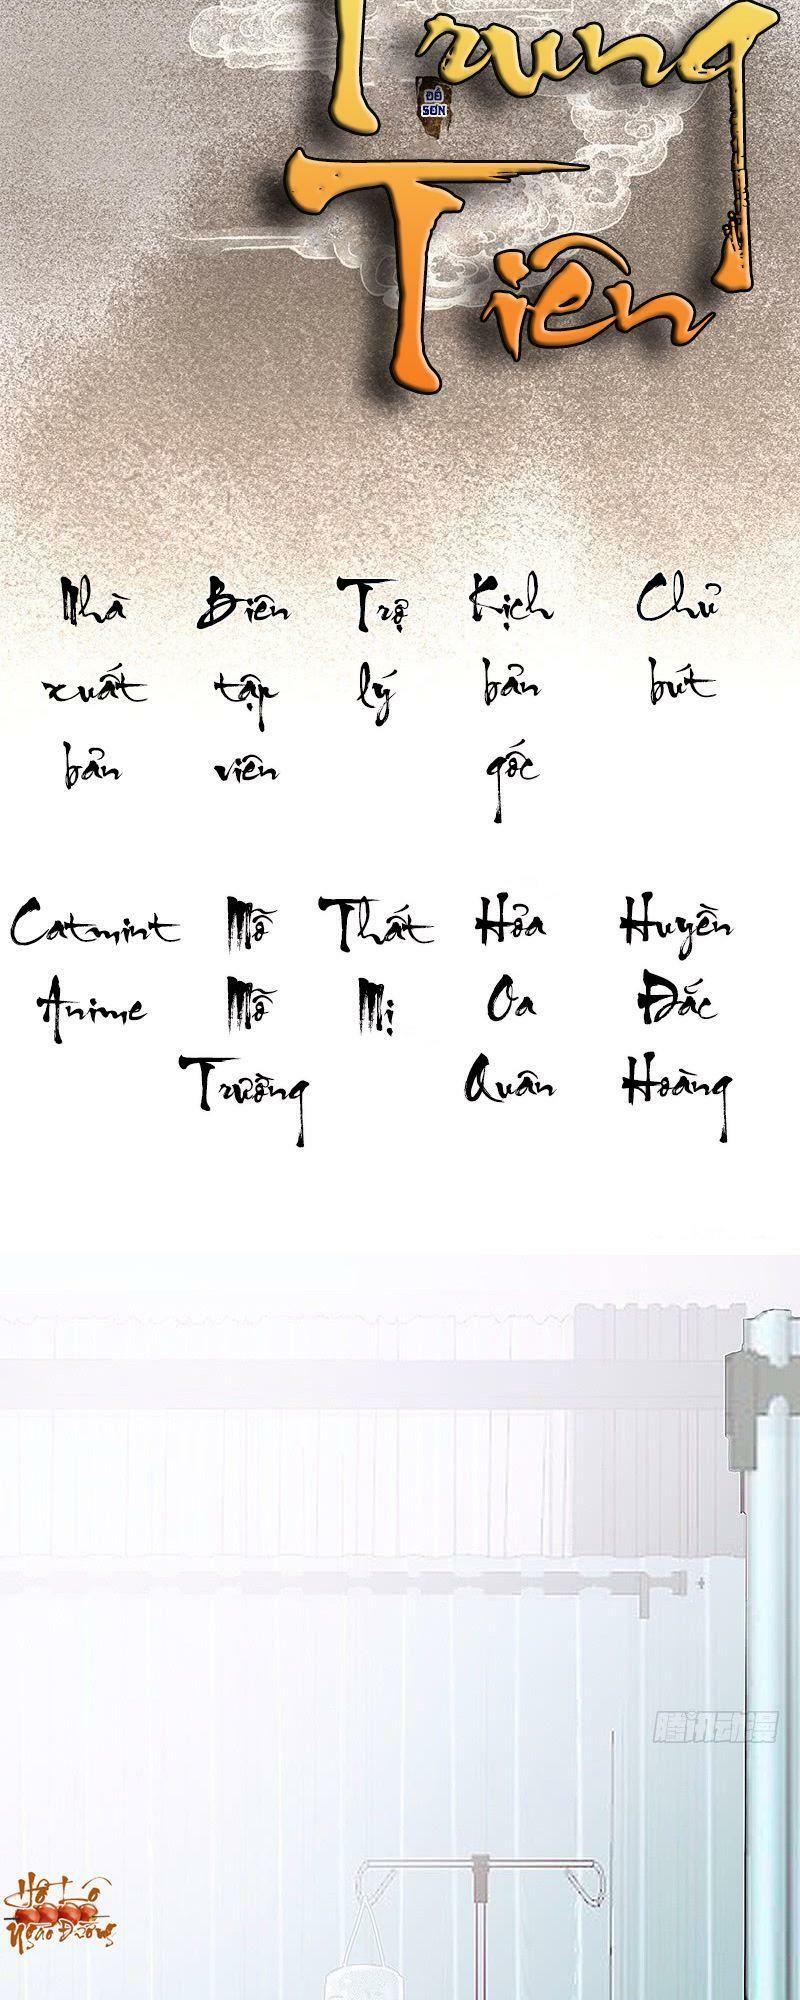 Trung
ĐỀ
SƠN
Tiên
Nhà Biên Trợ Kịch Chủ
xuất tập lý bản bút
bản viên gốc
Catmint Mỗ Thất Hỏa Huyền
Anime Mỗ Mị Oa Đắc
Trường Quân Hoàng
腾讯动漫
Hồ Lô
Ngào Đường